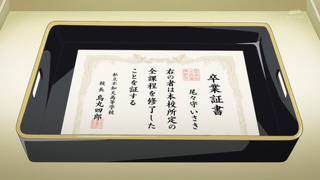 卒業証書
尾々守いさき
右の者は本校所定の
全課程を修了した
ことを証する
私立不知火高等学校
校長 烏丸四郎